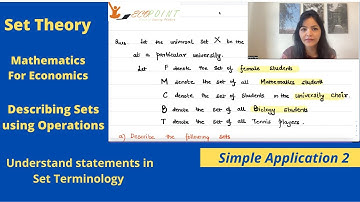 Set Theory
Mathematics
For Economics
Describing Sets
using Operations
Understand statements in
Set Terminology
ECOPOINT
Ques. Let the universal set X be the
at a particular university.
Let F denote the set of female students
M denote the set of all Mathematics students
C denote the set of students in the university choir.
B denote the set of all Biology students
T denote the set of all Tennis players.
a) Describe the following sets
Simple Application 2